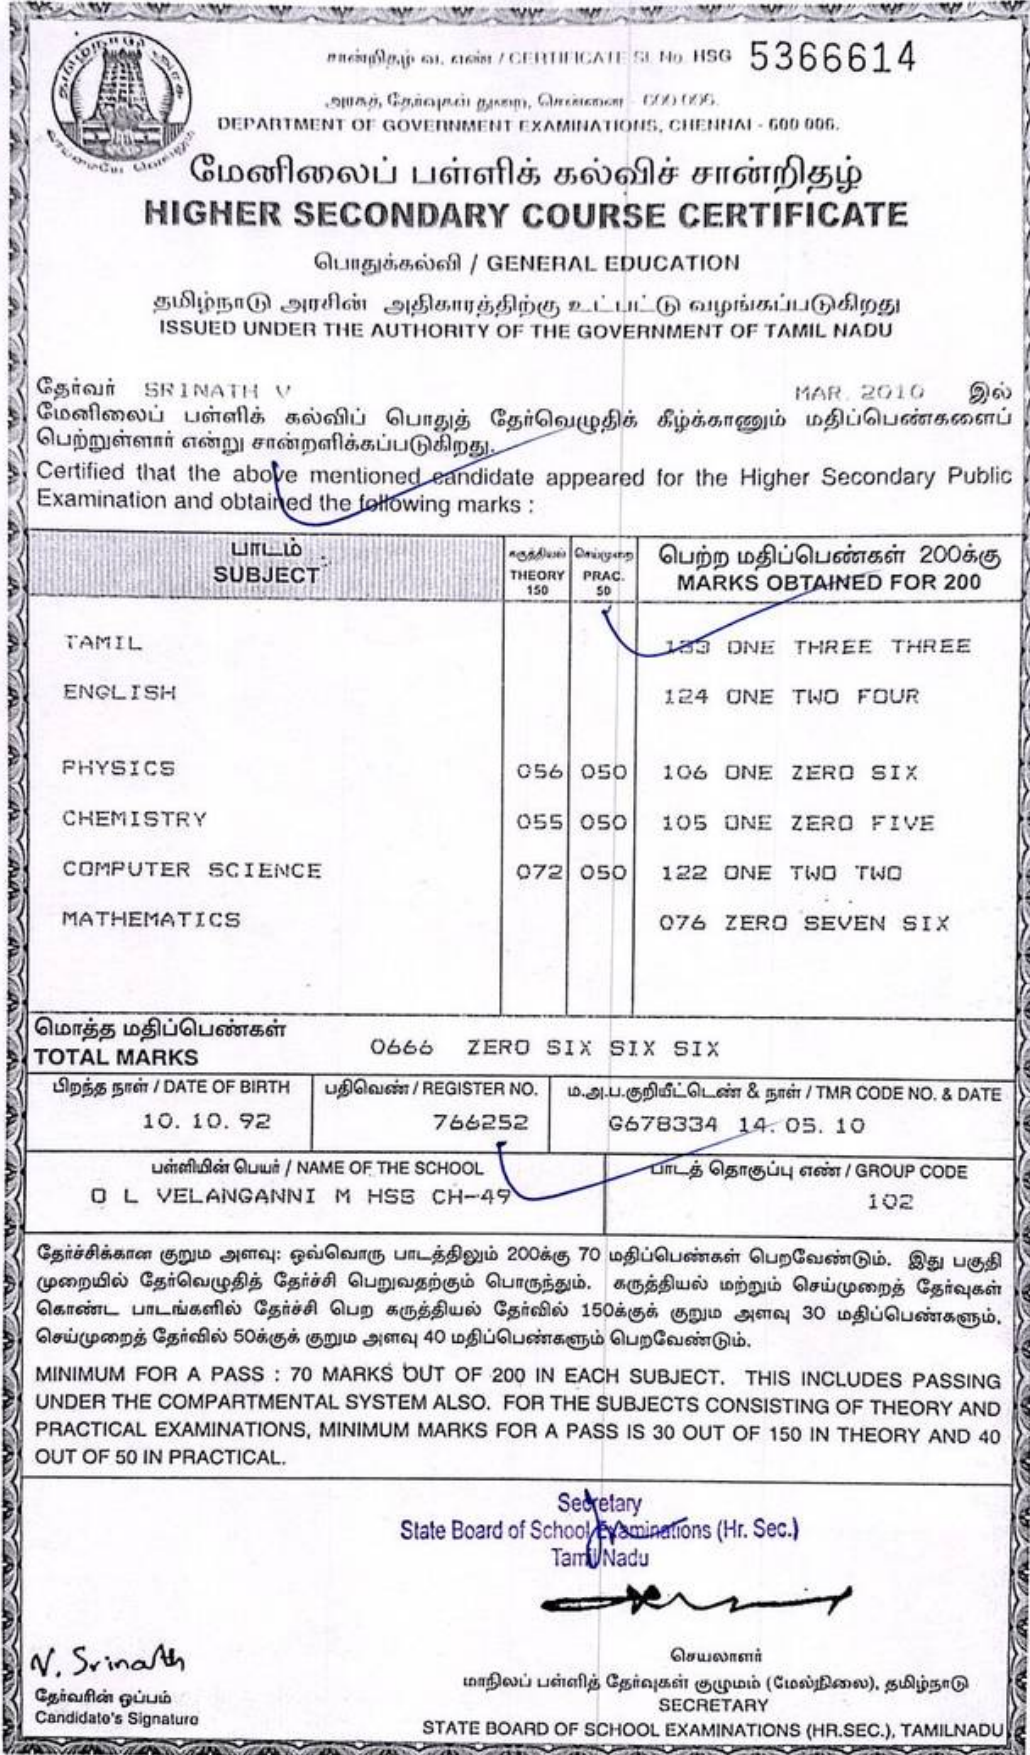 சான்றிதழ் வ. எண் / CERTIFICATE Sl. No. HSG 5366614
அரசுத் தேர்வுகள் துறை, சென்னை - 600 006.
DEPARTMENT OF GOVERNMENT EXAMINATIONS, CHENNAI - 600 006.
மேனிலைப் பள்ளிக் கல்விச் சான்றிதழ்
HIGHER SECONDARY COURSE CERTIFICATE
பொதுக்கல்வி / GENERAL EDUCATION
தமிழ்நாடு அரசின் அதிகாரத்திற்கு உட்பட்டு வழங்கப்படுகிறது
ISSUED UNDER THE AUTHORITY OF THE GOVERNMENT OF TAMIL NADU
தேர்வர் SRINATH V MAR. 2010 இல்
மேனிலைப் பள்ளிக் கல்விப் பொதுத் தேர்வெழுதிக் கீழ்க்காணும் மதிப்பெண்களைப்
பெற்றுள்ளார் என்று சான்றளிக்கப்படுகிறது.
Certified that the above mentioned candidate appeared for the Higher Secondary Public
Examination and obtained the following marks :
பாடம் கருத்தியல் செய்முறை பெற்ற மதிப்பெண்கள் 200க்கு
SUBJECT THEORY 150 PRAC. 50 MARKS OBTAINED FOR 200
TAMIL 133 ONE THREE THREE
ENGLISH 124 ONE TWO FOUR
PHYSICS 056 050 106 ONE ZERO SIX
CHEMISTRY 055 050 105 ONE ZERO FIVE
COMPUTER SCIENCE 072 050 122 ONE TWO TWO
MATHEMATICS 076 ZERO SEVEN SIX
மொத்த மதிப்பெண்கள்
TOTAL MARKS 0666 ZERO SIX SIX SIX
பிறந்த நாள் / DATE OF BIRTH பதிவெண் / REGISTER NO. ம.அ.ப.குறியீட்டெண் & நாள் / TMR CODE NO. & DATE
10. 10. 92 766252 G678334 14. 05. 10
பள்ளியின் பெயர் / NAME OF THE SCHOOL பாடத் தொகுப்பு எண் / GROUP CODE
O L VELANGANNI M HSS CH-49 102
தேர்ச்சிக்கான குறும அளவு: ஒவ்வொரு பாடத்திலும் 200க்கு 70 மதிப்பெண்கள் பெறவேண்டும். இது பகுதி
முறையில் தேர்வெழுதித் தேர்ச்சி பெறுவதற்கும் பொருந்தும். கருத்தியல் மற்றும் செய்முறைத் தேர்வுகள்
கொண்ட பாடங்களில் தேர்ச்சி பெற கருத்தியல் தேர்வில் 150க்குக் குறும அளவு 30 மதிப்பெண்களும்,
செய்முறைத் தேர்வில் 50க்குக் குறும அளவு 40 மதிப்பெண்களும் பெறவேண்டும்.
MINIMUM FOR A PASS : 70 MARKS OUT OF 200 IN EACH SUBJECT. THIS INCLUDES PASSING
UNDER THE COMPARTMENTAL SYSTEM ALSO. FOR THE SUBJECTS CONSISTING OF THEORY AND
PRACTICAL EXAMINATIONS, MINIMUM MARKS FOR A PASS IS 30 OUT OF 150 IN THEORY AND 40
OUT OF 50 IN PRACTICAL.
Secretary
State Board of School Examinations (Hr. Sec.)
Tamil Nadu
V. Srinath
தேர்வரின் ஒப்பம்
Candidate's Signature
செயலாளர்
மாநிலப் பள்ளித் தேர்வுகள் குழுமம் (மேல்நிலை), தமிழ்நாடு
SECRETARY
STATE BOARD OF SCHOOL EXAMINATIONS (HR.SEC.), TAMILNADU